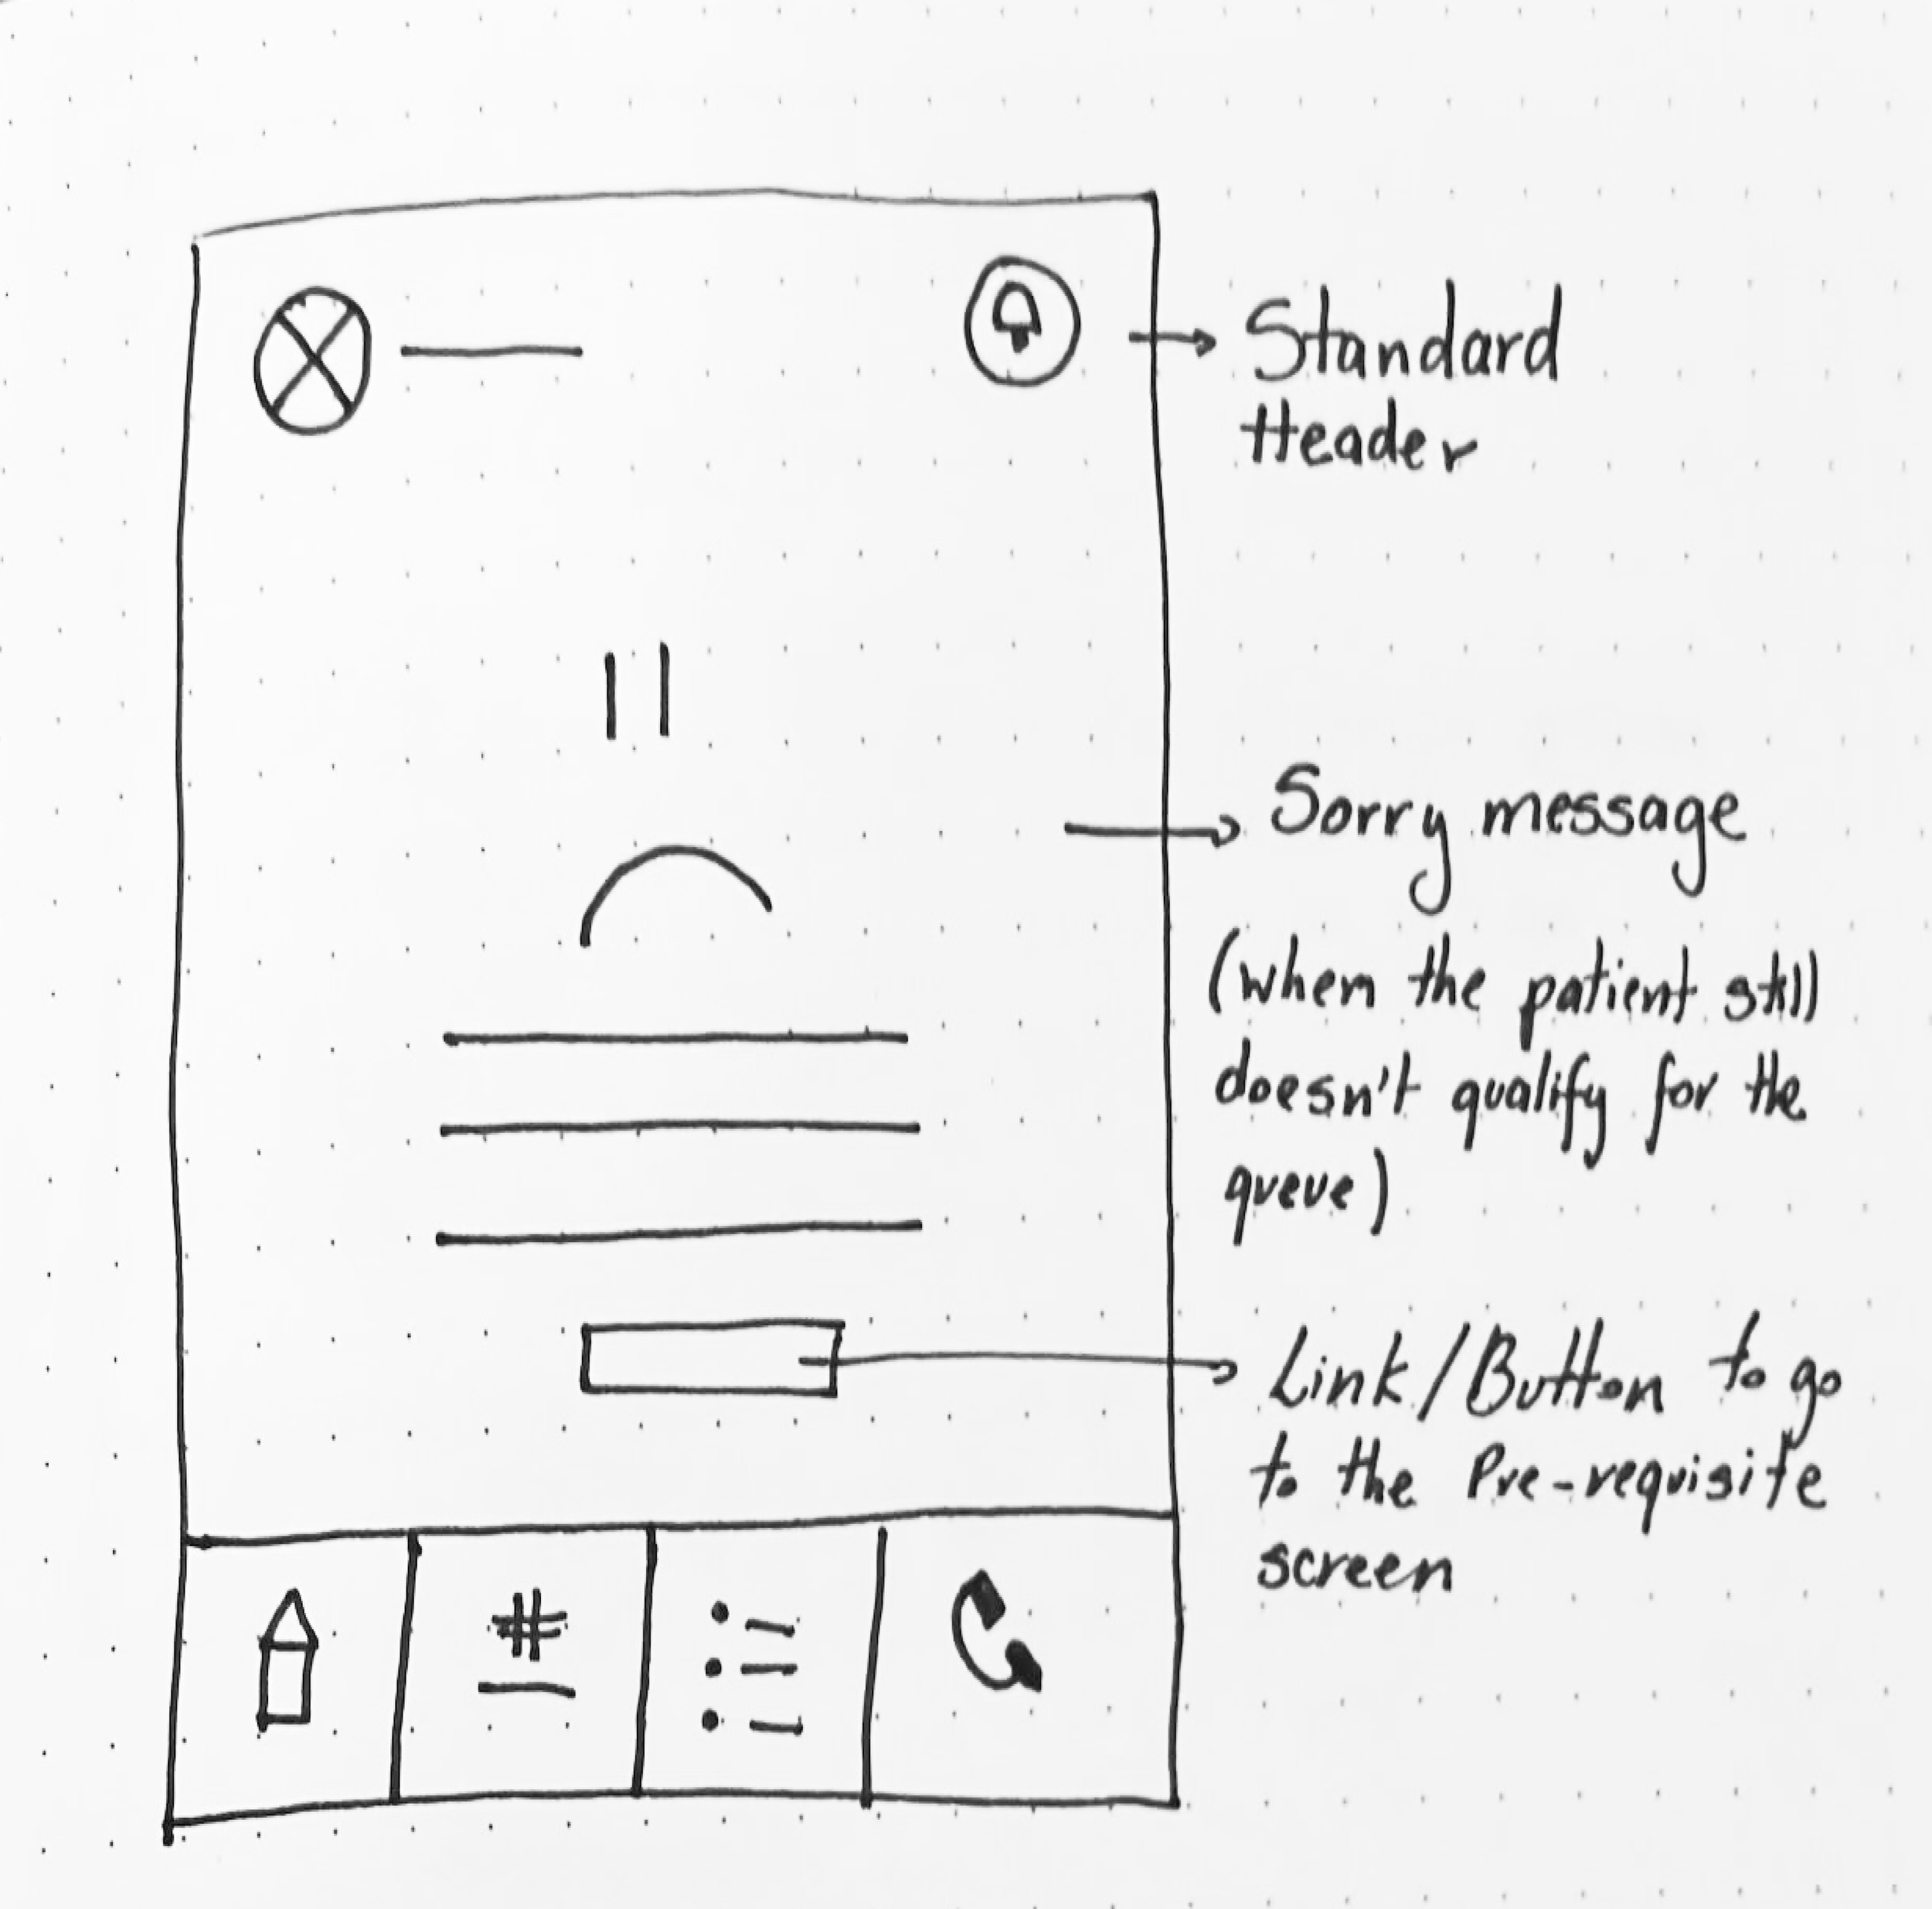 Standard
Header
Sorry message
(when the patient still
doesn't qualify for the
queue)
Link/Button to go
to the Pre-requisite
screen
#